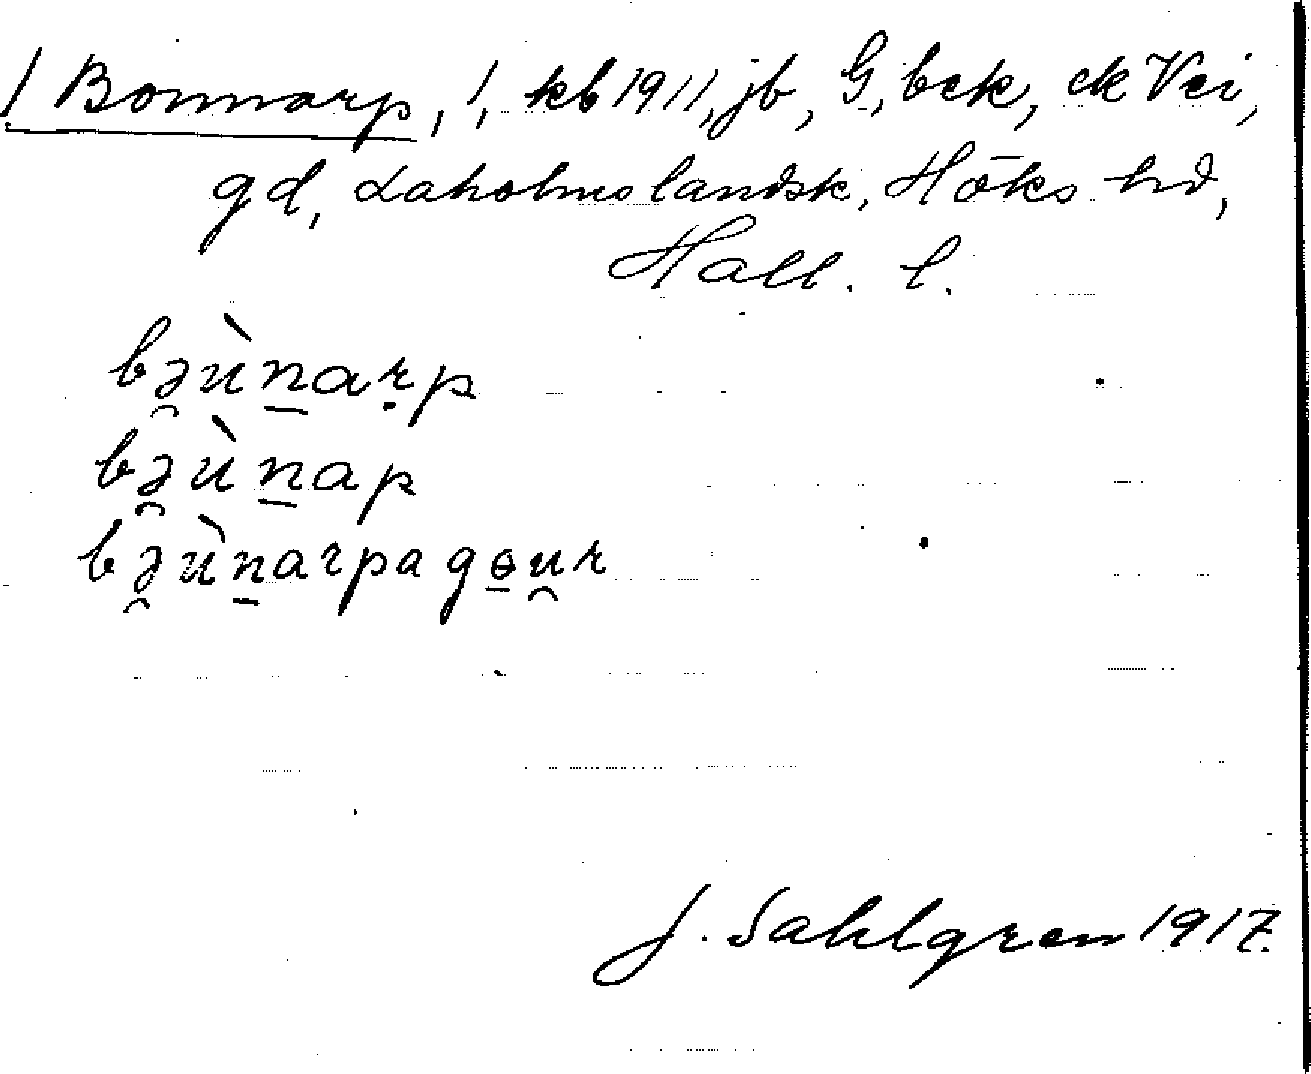 / Bonnarp, /, kb 1911, jb, G, bek, ek Vei,
gd, Laholms landsk, Höks hd,
Hall. l.
bə̯ùn̲aṛp
bə̯ùn̲ap
bə̯ùn̲arpa gɵ̲u̯r
J. Sahlgren 1917.